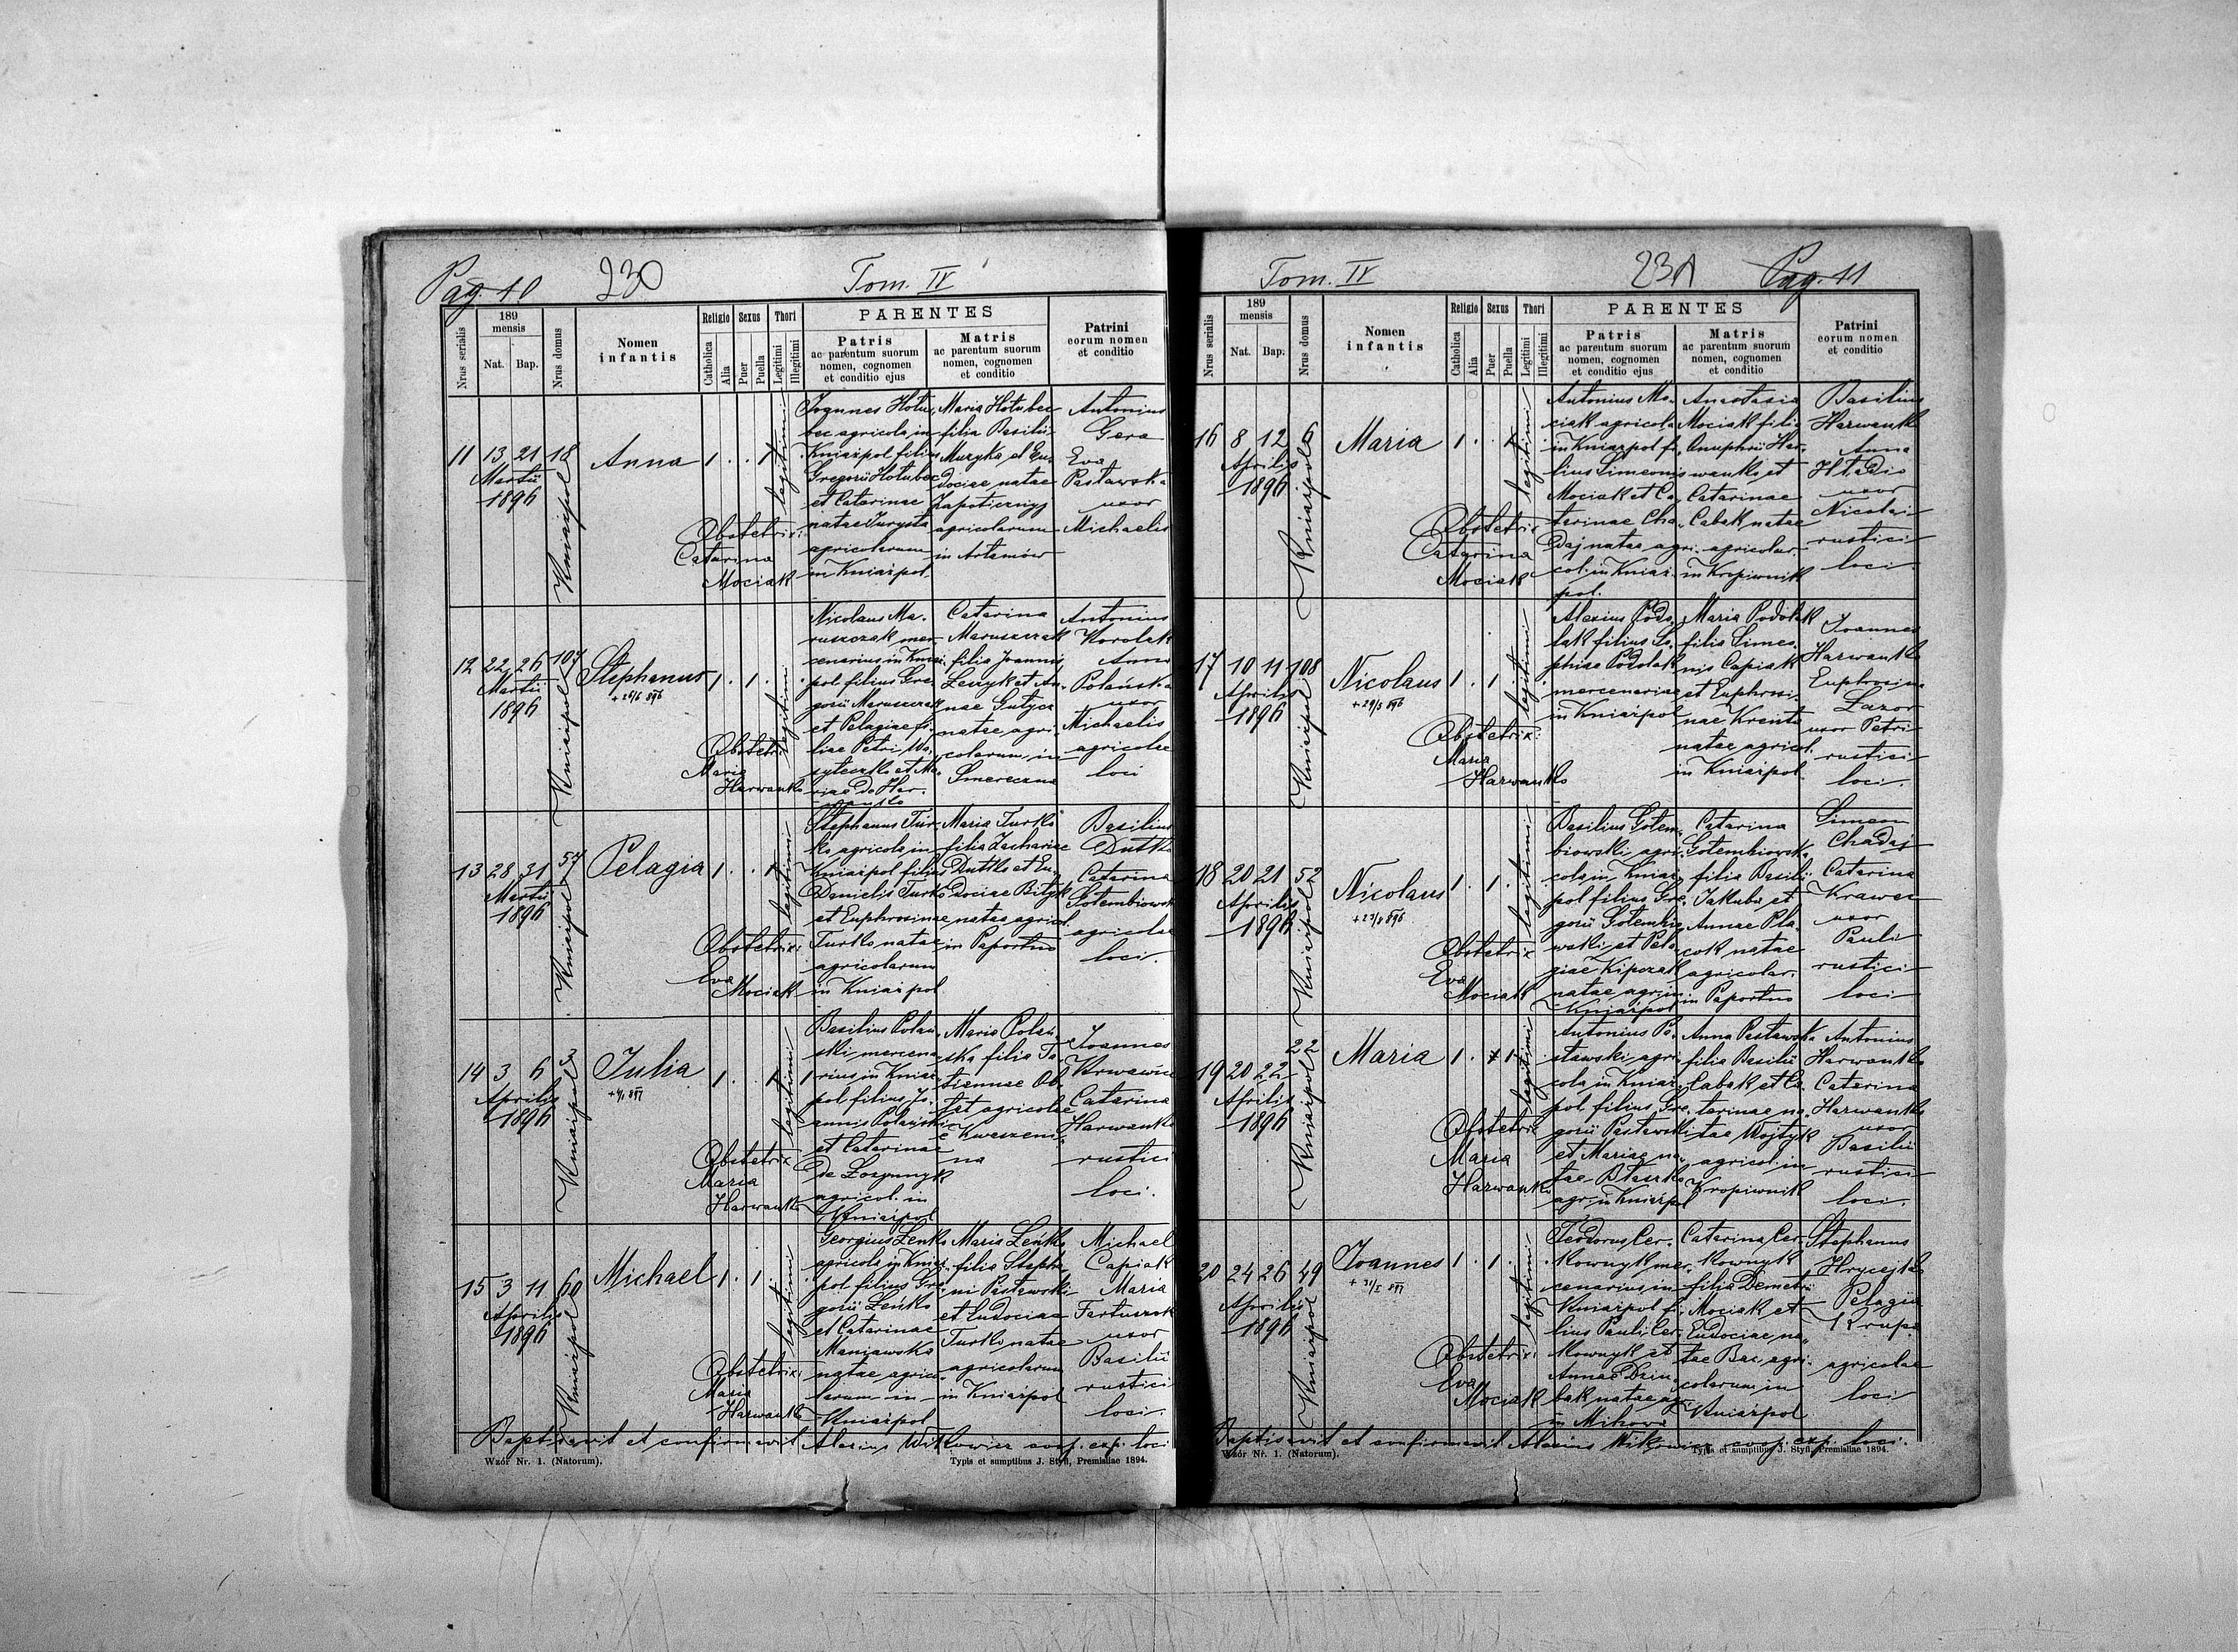 Pag. 10 230 Tom. IV
Nrus serialis
189
mensis
Nat. Bap.
Nrus domus
Nomen
infantis
Religio Sexus Thori
Catholica Alia Puer Puella Legitimi Illegitimi
PARENTES
Patris
ac parentum suorum
nomen, cognomen
et conditio ejus
Matris
ac parentum suorum
nomen, cognomen
et conditio
Patrini
eorum nomen
et conditio
11 13 21 18
Martii
1896
Kniaźpol
Anna
1 . . 1 legitimi
Obstetrix:
Catarina
Mociak
Joannes Hołu-
bec agricola in
Kniaźpol filius
Gregorii Hołubec
et Catarinae
natae Jurysta
agricolarum
in Kniaźpol.
Maria Hołubec
filia Basilii
Muzyka et Eu-
dociae natae
Zapoticznyj
agricolarum
in Artamów
Antonius
Gera
Eva
Pasławska
uxor
Michaelis
12 22 26 107
Martii
1896
Kniaźpol
Stephanus
+ 26/6 896
1 . 1 . legitimi
Obstetrix
Maria
Harwanko
Nicolaus Ma-
ruszczak mer-
cenarius in Knia-
pol filius Gre-
gorii Maruszczak
et Pelagiae fi-
liae Petri Wa-
syleczko et Ma-
riae de Har-
wanko
Catarina
Maruszczak
filia Joannis
Lenyk et An-
nae Gutycz
natae agri-
colarum in
Smereczna
Antonius
Korolak
Anna
Polańska
uxor
Michaelis
agricolae
loci
13 28 31 57
Martii
1896
Kniaźpol
Pelagia
1 . . 1 legitimi
Obstetrix:
Eva
Mociak
Stephanus Tur-
ko agricola in
Kniaźpol filius
Danielis Turko
et Euphrosinae
Turko natae
agricolarum
in Kniaźpol
Maria Turko
filia Zachariae
Dutko et Eu-
dociae Bityk
natae agricol.
in Paportno
Basilius
Dutko
Catarina
Gołembiowsk
agricolae
loci.
14 3 6 3
Aprilis
1896
Kniaźpol
Julia
1 . . 1 legitimi
Obstetrix
Maria
Harwanko
Basilius Polań-
ski mercena-
rius in Kniaź-
pol filius Jo-
annis Polański
et Catarinae
de Łozynnyk
agricol. in
Kniaźpol
Maria Polań-
ska filia Ta-
tiannae Ob-
łat agricolae
e Kwaszeni-
na
Joannes
Krwawicz
Catarina
Harwanko
rustici
loci.
15 3 11 60
Aprilis
1896
Kniaźpol
Michael
1 . 1 . legitimi
Obstetrix:
Maria
Harwanko
Georgius Leńko
agricola in Kniaź-
pol filius Gre-
gorii Leńko
et Catarinae
Maniawska
natae agrico-
larum in
Kniaźpol
Maria Leńko
filia Stepha-
ni Pasławski
et Eudociae
Turko natae
agricolarum
in Kniaźpol
Michael
Capiak
Maria
Fartuszok
uxor
Basilii
rustici
loci.
Baptisavit et confirmavit Alexius Witkowicz coop. exp. loci
Wzór Nr. 1. (Natorum). Typis et sumptibus J. Styfi, Premisliae 1894.
Tom. IV 231 Pag. 11
Nrus serialis
189
mensis
Nat. Bap.
Nrus domus
Nomen
infantis
Religio Sexus Thori
Catholica Alia Puer Puella Legitimi Illegitimi
PARENTES
Patris
ac parentum suorum
nomen, cognomen
et conditio ejus
Matris
ac parentum suorum
nomen, cognomen
et conditio
Patrini
eorum nomen
et conditio
16 8 12 6
Aprilis
1896
Kniaźpol
Maria
1 . . 1 legitimi
Obstetrix
Catarina
Mociak
Antonius Mo-
ciak agricola
in Kniaźpol fi-
lius Simeonis
Mociak et Ca-
tarinae Cha-
daj natae agri-
col. in Kniaź-
pol.
Anastasia
Mociak filia
Onuphrii Har-
wanko et
Catarinae
Cabak natae
agricolar.
in Kropiwnik
Basilius
Harwanko
Anna
Hładio
uxor
Nicolai
rustici
loci
17 10 11 108
Aprilis
1896
Kniaźpol
Nicolaus
+ 29/5 896
1 . 1 . legitimi
Obstetrix:
Maria
Harwanko
Alexius Podo-
lak filius So-
phiae Podolak
mercenariae
in Kniaźpol
Maria Podolak
filia Simeo-
nis Capiak
et Euphrosi-
nae Krenta
natae agricol.
in Kniaźpol.
Joannes
Harwanko
Euphrosina
Lazor
uxor Petri
rustici
loci.
18 20 21 52
Aprilis
1896
Kniaźpol
Nicolaus
1 . 1 . legitimi
Obstetrix
Eva
Mociak
Basilius Gołem-
biowski agri-
cola in Kniaź-
pol filius Gre-
gorii Gołembio-
wski et Pela-
giae Kipczak
natae agr. in
Kniaźpol
Catarina
Gołembiowsk.
filia Basilii
Jakuba et
Annae Pla-
cok natae
agricolar.
in Paportno
Simeon
Chadaj
Catarina
Krawec
uxor
Pauli
rustici
loci
19 20 22 22
Aprilis
1896
Kniaźpol
Maria
1 . 1 legitimi
Obstetrix
Maria
Harwanko
Antonius Pa-
sławski agri-
cola in Kniaź-
pol filius Gre-
gorii Pasławski
et Mariae na-
tae Błaszko
agr. in Kniaźpol
Anna Pasławska
filia Basilii
Cabak et Ca-
tarinae na-
tae Wojtyk
agricol. in
Kropiwnik
Antonius
Harwanko
Catarina
Harwanko
uxor
Basilii
rustici
loci.
20 24 26 49
Aprilis
1896
Kniaźpol
Joannes
1 . 1 . legitimi
Obstetrix:
Eva
Mociak
Teodorus Cer-
kownyk mer-
cenarius in
Kniaźpol fi-
lius Pauli Cer-
kownyk et
Annae Dziu-
bak natae agr.
in Mihowa
Catarina Cer-
kownyk
filia Demetrii
Mociak et
Eudociae na-
tae Bac, agri-
colarum in
Kniaźpol
Stephanus
Hrycejko
Pelagia
Krupa
agricolae
loci
Baptisavit et confirmavit Alexius Witkowicz coop. exp. loci.
Wzór Nr. 1. (Natorum). Typis et sumptibus J. Styfi, Premisliae 1894.